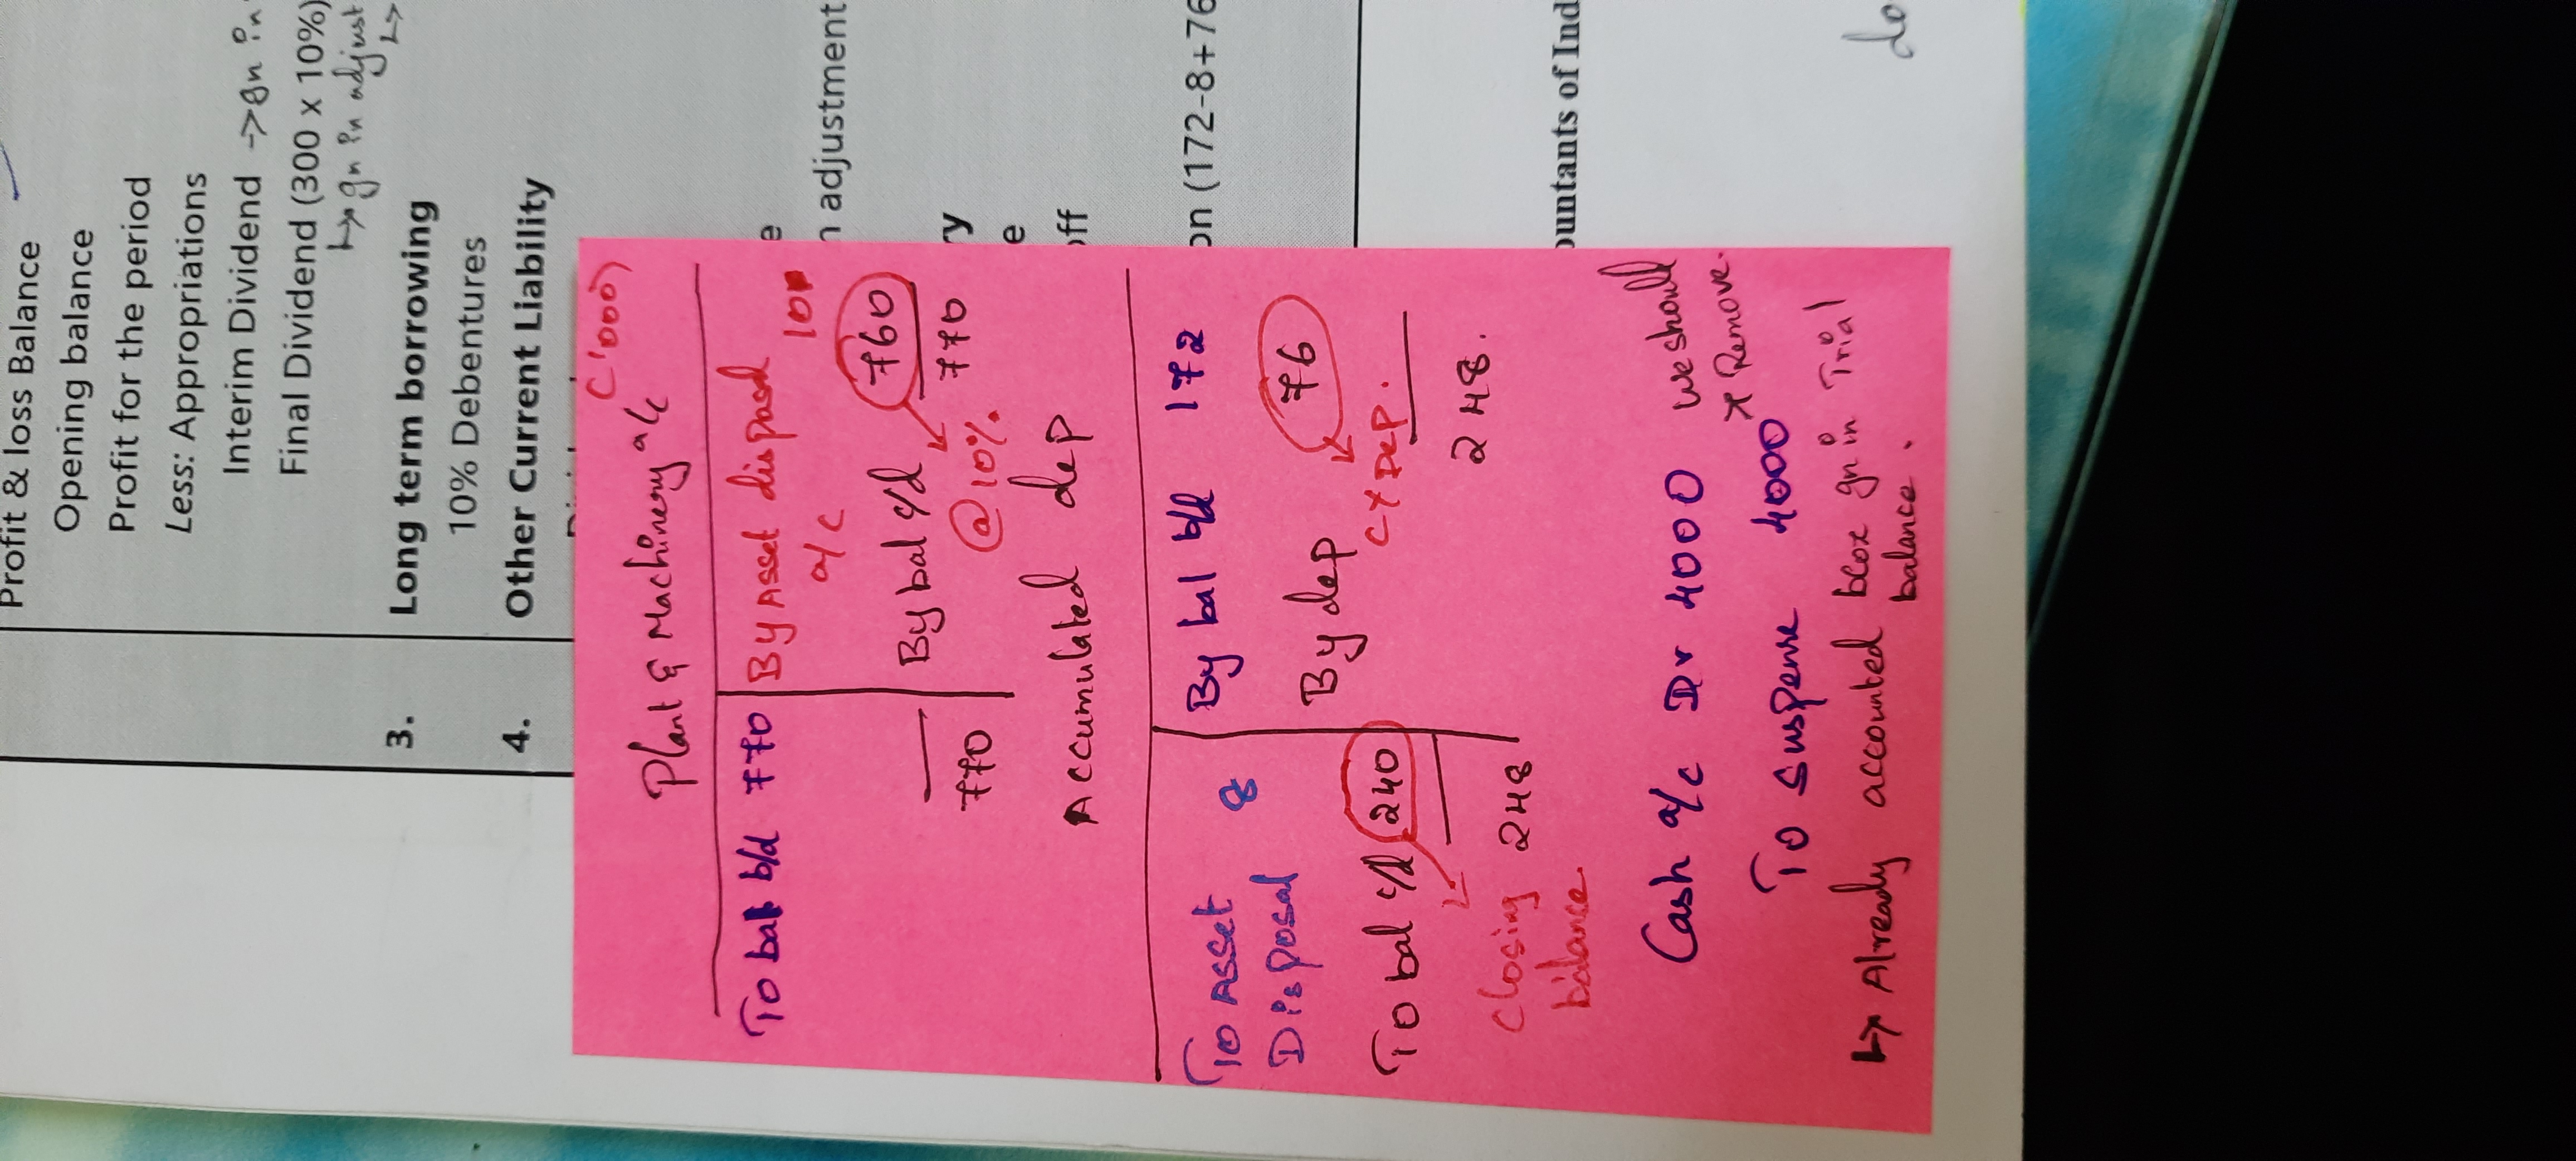 Profit & loss Balance
Opening balance
Profit for the period
Less: Appropriations
Interim Dividend → gn in
Final Dividend (300 x 10%)
↳ gn in adjust
↳
3. Long term borrowing
10% Debentures
4. Other Current Liability
e
n adjustment
ry
e
off
on (172-8+76
ountants of Ind
do
('000)
Plant & Machinery a/c
To bal b/d 770
By Asset disposal 10
a/c
By bal c/d 760
@ 10%
770
770
Accumulated dep
To Asset 8
Disposal
By bal b/d 172
By dep 76
CY Dep.
To bal c/d 240
closing
balance.
248
248.
Cash a/c Dr 4000 we should
Remove.
To Suspense 4000
↳ Already accounted bcoz gn in Trial
balance.